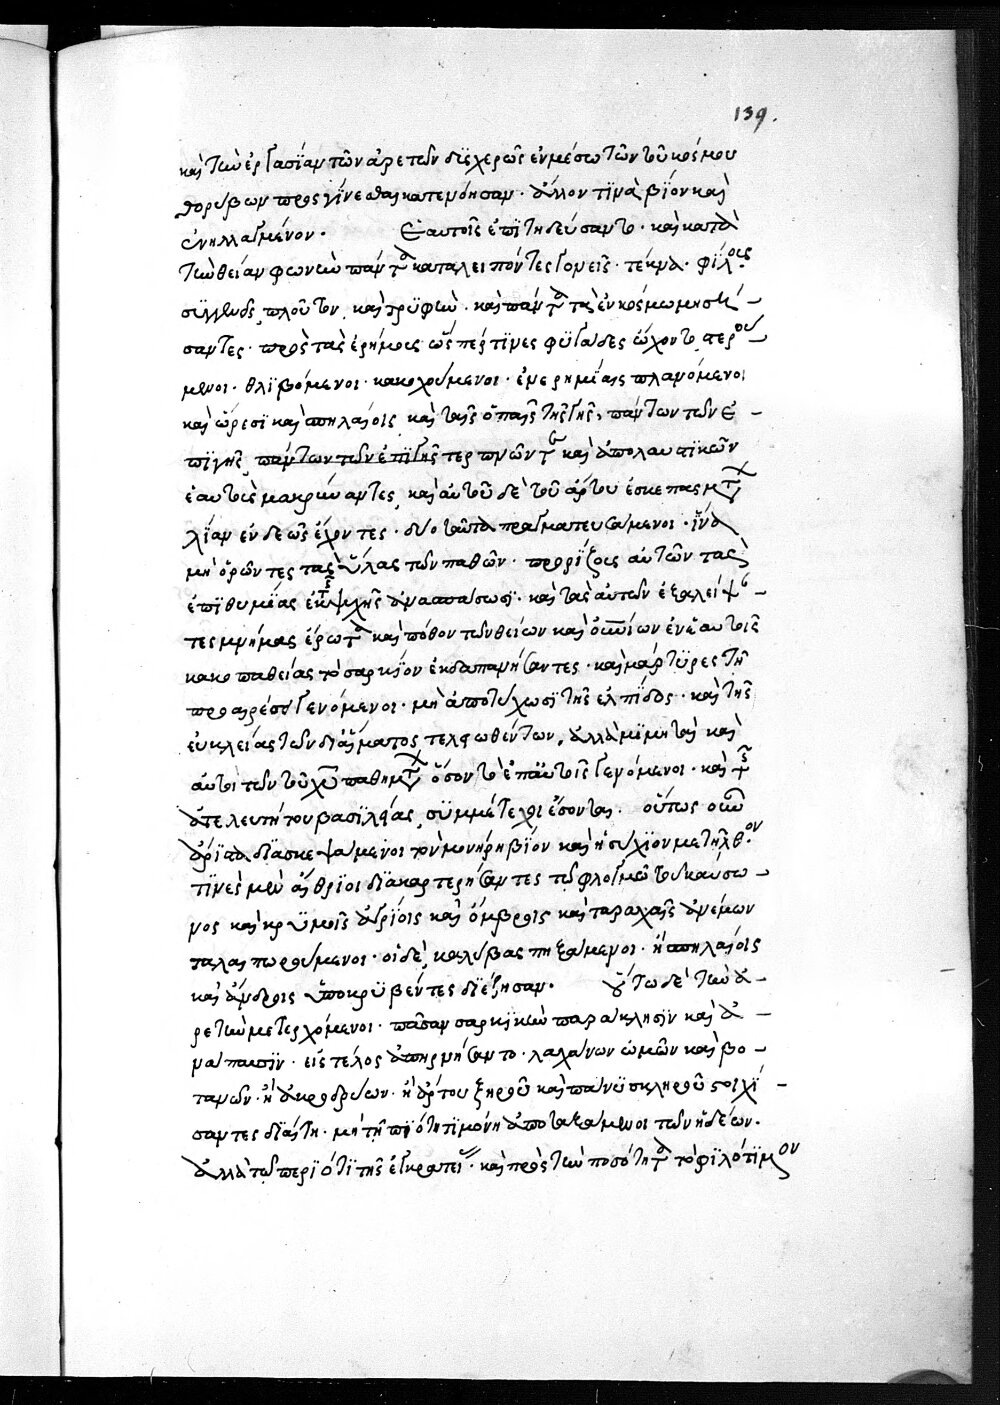 139.
καὶ τὴν ἐργασίαν τῶν ἀρετῶν δϊεχερῶς ἐν μέσω τῶν τοῦ κόσμου
θορύβων προσγίνεσθαι κατενόησαν· ἄλλον τϊνὰ βίον καὶ
ἐνηλλαγμένον· Ἑαυτοῖς ἐπϊτηδεύσαντο· καὶ κατὰ
τὴν θείαν φωνὴν πάντα καταλειπόντες γονεῖς· τέκνα· φίλους
συγγενεῖς, πλοῦτον, καὶ τρϋφὴν· καὶ πάντα τὰ ἐν κόσμω μησή–
σαντες· πρὸς τὰς ἐρήμους ὥσπέρ τϊνες φϋγάδες ὤχοντο στερού–
μενοι· θλιβόμενοι· κακοχούμενοι· ἐν ἐρημίαις πλανόμενοι
καὶ ὤρεσϊ καὶ σπηλαίοις καὶ ταῖς ὀπαῖς τῆς γῆς, πάντων τῶν ἐ–
πϊγῆς, πάντων τῶν ἐπϊγῆς τερπνῶν τε καὶ ἀπολαυστικῶν
ἑαυτοὺς μακρύναντες, καὶ αὐτοῦ δὲ τοῦ ἄρτου ἐσκεπάσματων
λίαν ἐνδεῶς ἔχοντες· δύο ταῦτα πραγματευσάμενοι· ἵνα
μὴ ὁρῶντες τὰς ὕλας τῶν παθῶν· προρίζους αὐτῶν τὰς
ἐπϊθυμίας ἐκ τῆς ψυχῆς ἀνασπάσωσϊ· καὶ τὰς αὐτῶν ἐξαλείψαν–
τες μνήμας ἔρωτα καὶ πόθον τῶν θείων καὶ οὐνίων ἐν ἑαυτοῖς
κακοπαθείας τὸ σαρκϊον ἐκδαπανήσαντες· καὶ μάρτϋρες τῆ
προαιρέσει γενόμενοι· μὴ ἀποτύχωσϊ τῆς ἐλπίδος· καὶ τῆς
εὐκλείας τῶν δϊ αἵματος τελειωθέντων, ἀλλὰ μϊμηταὶ καὶ
αὐτοὶ τῶν τοῦ χῦ παθημάτων ὅσον τὸ ἐπ αὐτοῖς γενόμενοι· καὶ τῆς
ἀτελευτήτου βασϊλείας, συμμέτοχοι ἔσονται. οὕτως οὖν
ἄρϊστα δϊασκεψάμενοι τὸν μονήρη βϊον καὶ ἡσύχϊον μετῆλθον·
τϊνὲς μὲν αἴθρϊοι δϊακαρτερήσαντες τῶ φλογμῶ τοῦ καύσω–
νος καὶ κρϋμοῖς ἀγρίοις καὶ ὄμβροις καὶ ταραχαῖς ἀνέμων
ταλαιπωρούμενοι· οἱ δὲ, καλύβας πηξάμενοι· ἢ σπηλαίοις
καὶ ἄνδροις ὑποκρϋβέντες δϊέζησαν. οὕτω δὲ τὴν ἀ–
ρετὴν μετερχόμενοι· πᾶσαν σαρκϊκὴν παράκλησϊν καὶ ἀ–
νάπαυσϊν· εἰς τέλος ἀπηρνήσαντο· λαχάνων ὠμῶν καὶ βο–
τανῶν· ἢ ἀκροδρύων· ἢ ἄρτου ξηροῦ καὶ πάνϋ σκληροῦ στοιχί–
σαντες δϊαίτη· μὴ τῆ πϊότητϊ μόνη ἀποταξάμενοι τῶν ἡδέων.
ἀλλὰ τῶ περϊόντϊ τῆς ἐγκρατείας καὶ πρὸς τὴν ποσότητα τὸ φϊλότϊμον